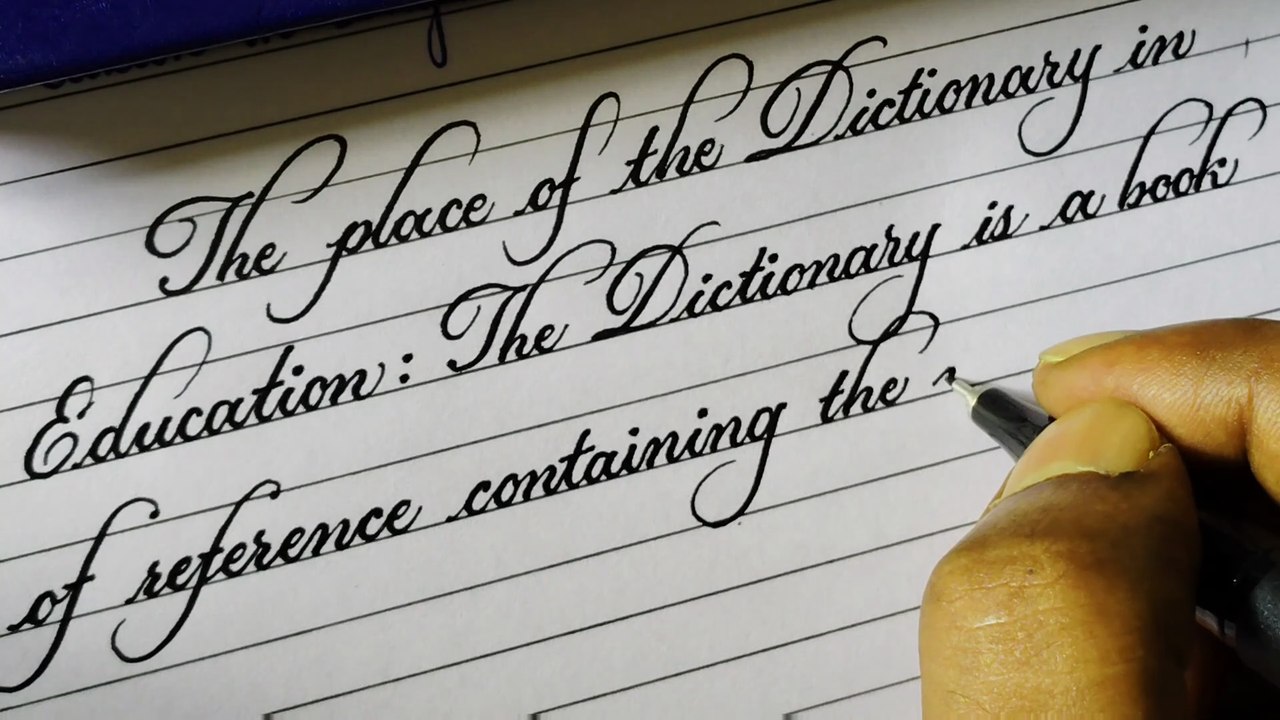 The place of the Dictionary in
Education: The Dictionary is a book
of reference containing the